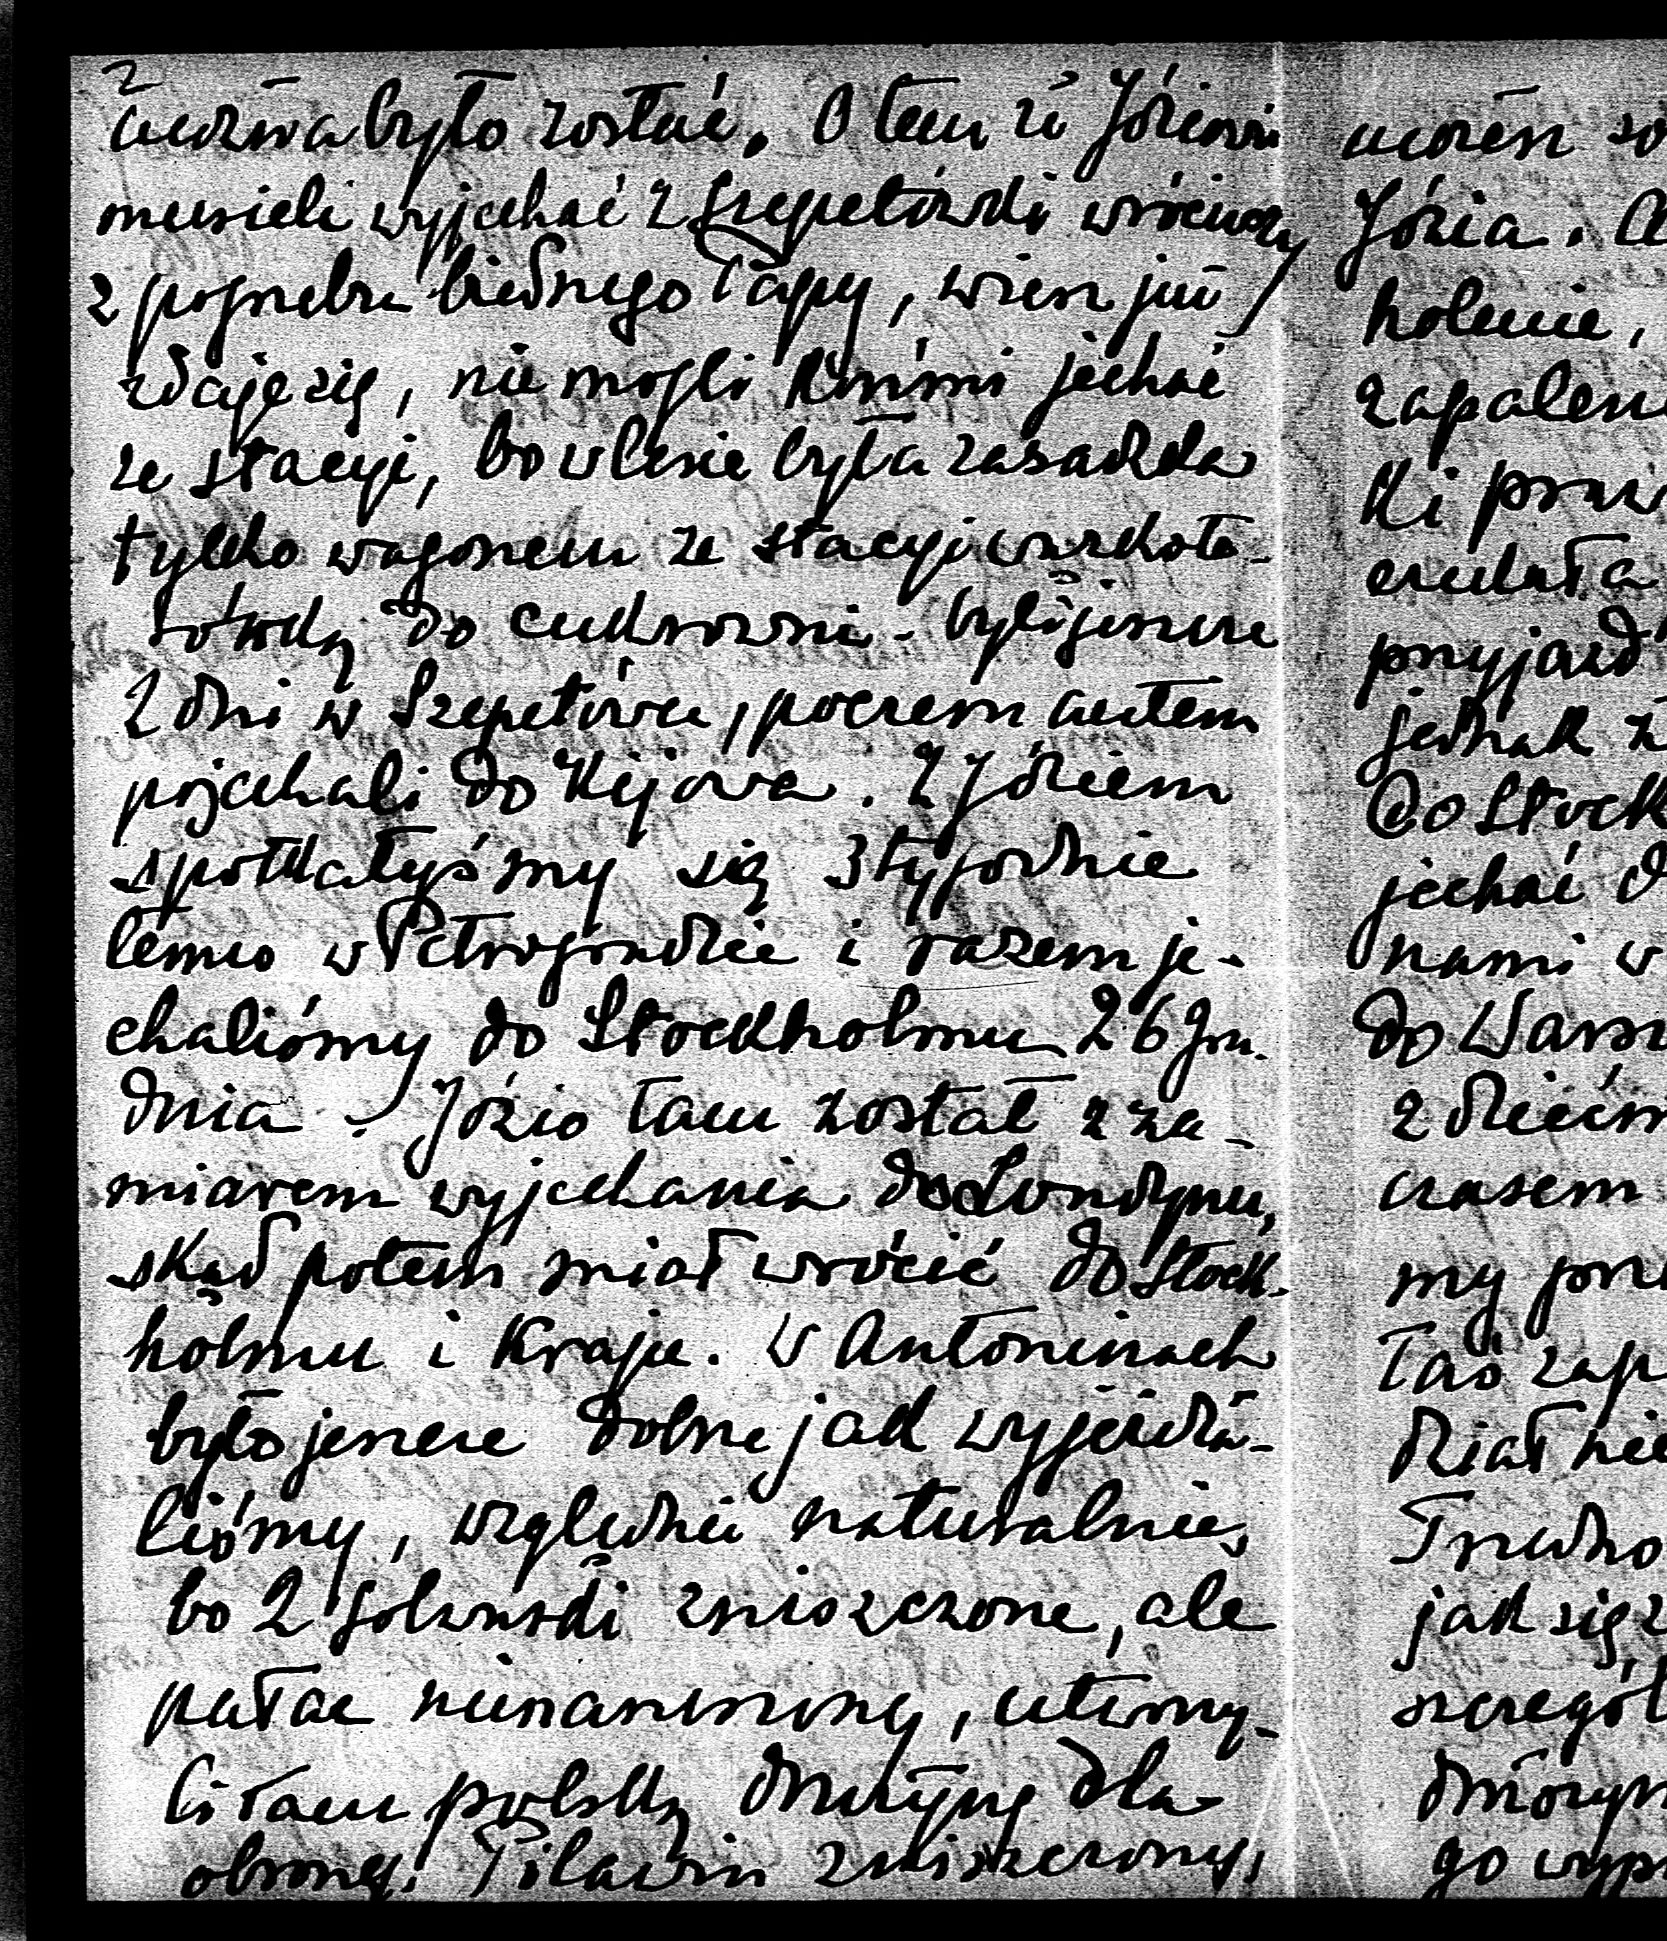 2
można było zostać. O tem że Józiowie
musieli wyjechać z Szepetówki wróciwszy
z pogrzebu biednego Papy, wiesz już
zdaje się, nie mogli końmi jechać
ze stacyi, bo w lesie była zasadzka
tylko wagonem ze stacyi wązkoto-
rówką do cukrowni - byli jeszcze
2 dni w Szepetówce, poczem autem
pojechali do Kijowa. Z Józiem
spotkałyśmy się 3 tygodnie
temu w Petrogradzie i razem je-
chaliśmy do Stockholmu 26 gru-
dnia. Józio tam został z za-
miarem wyjechania do Londynu,
skąd potem miał wrócić do Stock-
holmu i Kraju. W Antoninach
było jeszcze dobrze jak wyjeżdża-
liśmy, względnie naturalnie,
bo 2 folwarki zniszczone, ale
pałac nienaruszony, utworzy-
li tam polską drużynę dla
obrony. Pilawin zniszczony,
wcześn
Józia.
holmie,
zapaleni
ki
czekała
przyjazd
jednak
do Stock
jechać
nami w
do Warsz
z dziećm
czasem
my
Taś zap
dział nie
Trudno
jak się
szczegół
go